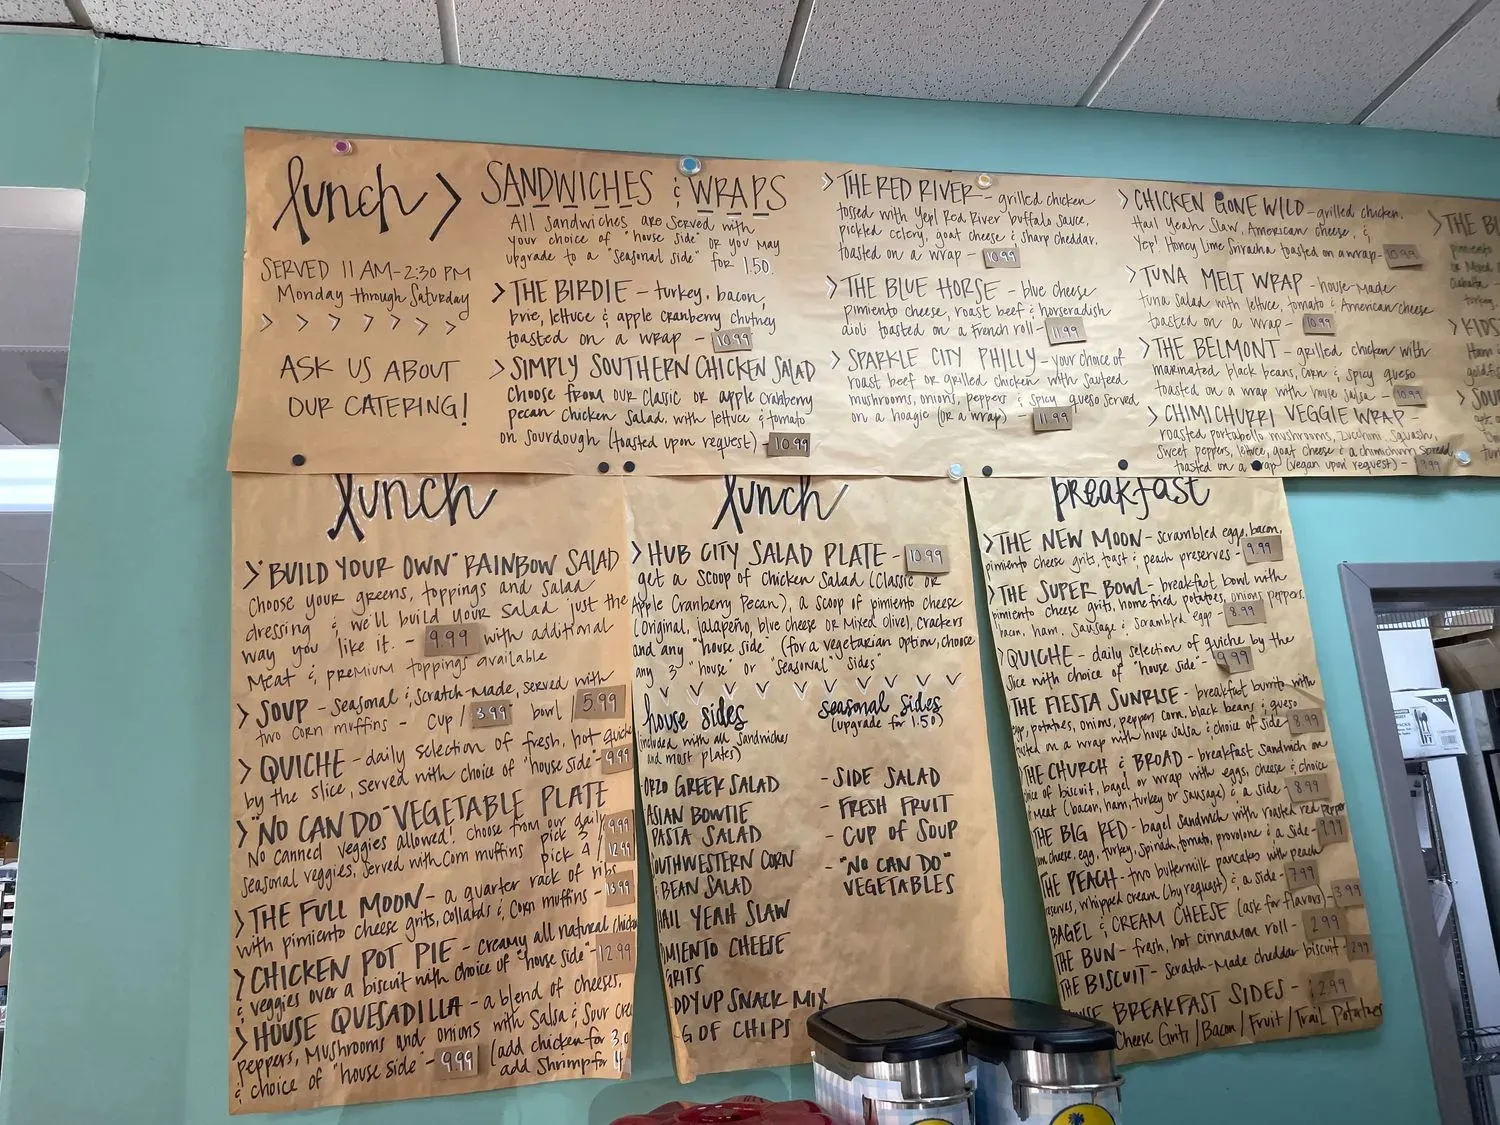 lunch >
SERVED 11 AM-2:30 PM
Monday through Saturday
> > > > > > >
ASK US ABOUT
OUR CATERING!
SANDWICHES & WRAPS
All sandwiches are served with
your choice of "house side" or you may
upgrade to a "seasonal side" for 1.50.
> THE BIRDIE - turkey, bacon,
brie, lettuce & apple cranberry chutney
toasted on a wrap - 10.99
> SIMPLY SOUTHERN CHICKEN SALAD
choose from our classic or apple cranberry
pecan chicken salad, with lettuce & tomato
on sourdough (toasted upon request) - 10.99
> THE RED RIVER - grilled chicken
tossed with Yep! Red River buffalo sauce,
pickled celery, goat cheese & sharp cheddar,
toasted on a wrap - 10.99
> THE BLUE HORSE - blue cheese
pimiento cheese, roast beef & horseradish
aioli toasted on a French roll - 11.99
> SPARKLE CITY PHILLY - your choice of
roast beef or grilled chicken with sauteed
mushrooms, onions, peppers & spicy queso served
on a hoagie (or a wrap) - 11.99
> CHICKEN GONE WILD - grilled chicken,
Hail Yeah Slaw, American cheese, &
Yep! Honey Lime Sriracha toasted on a wrap - 10.99
> TUNA MELT WRAP - house-made
tuna salad with lettuce, tomato & American cheese
toasted on a wrap - 10.99
> THE BELMONT - grilled chicken with
marinated black beans, corn & spicy queso
toasted on a wrap with house salsa - 10.99
> CHIMICHURRI VEGGIE WRAP -
roasted portabella mushrooms, zucchini, squash,
sweet peppers, lettuce, goat cheese & a chimichurri spread,
toasted on a wrap (vegan upon request) - 9.99
> THE BL
> KIDS
> SOU
lunch
> "BUILD YOUR OWN" RAINBOW SALAD
Choose your greens, toppings and salad
dressing & we'll build your salad just the
way you like it. - 9.99 with additional
meat & premium toppings available
> SOUP - seasonal & scratch-made, served with
two corn muffins - cup / 3.99 bowl / 5.99
> QUICHE - daily selection of fresh, hot quiche
by the slice, served with choice of "house side" - 9.99
> "NO CAN DO" VEGETABLE PLATE
No canned veggies allowed! choose from our daily
seasonal veggies, served with corn muffins pick 3 / 9.99
pick 4 / 12.99
> THE FULL MOON - a quarter rack of ribs
with pimiento cheese grits, collards & corn muffins - 13.99
> CHICKEN POT PIE - creamy all natural chicken
& veggies over a biscuit with choice of "house side" - 12.99
> HOUSE QUESADILLA - a blend of cheeses,
peppers, mushrooms and onions with salsa & sour cre
& choice of "house side" - 9.99 (add chicken for 3.0
add shrimp for 4
lunch
> HUB CITY SALAD PLATE - 10.99
get a scoop of chicken salad (Classic or
Apple Cranberry Pecan), a scoop of pimiento cheese
(original, jalapeño, blue cheese or mixed olive), crackers
and any "house side" (for a vegetarian option, choose
any 3 "house" or "seasonal" sides"
house sides
(included with all sandwiches
and most plates)
ORZO GREEK SALAD
ASIAN BOWTIE
PASTA SALAD
OUTHWESTERN CORN
& BEAN SALAD
HAIL YEAH SLAW
IMIENTO CHEESE
GRITS
DDYUP SNACK MIX
G OF CHIPS
seasonal sides
(upgrade for 1.50)
- SIDE SALAD
- FRESH FRUIT
- CUP OF SOUP
- "NO CAN DO"
VEGETABLES
breakfast
> THE NEW MOON - scrambled eggs, bacon,
pimiento cheese grits, toast & peach preserves - 9.99
> THE SUPER BOWL - breakfast bowl with
pimiento cheese grits, home fried potatoes, onions, peppers,
bacon, ham, sausage & scrambled egg - 8.99
> QUICHE - daily selection of quiche by the
slice with choice of "house side" - 9.99
THE FIESTA SUNRISE - breakfast burrito with
eggs, potatoes, onions, peppers, corn, black beans & queso
toasted on a wrap with house salsa & choice of side - 8.99
THE CHURCH & BROAD - breakfast sandwich on
choice of biscuit, bagel or wrap with eggs, cheese & choice
of meat (bacon, ham, turkey or sausage) & a side - 8.99
THE BIG RED - bagel sandwich with roasted red pepper
cheese, egg, turkey, spinach, tomato, provolone & a side - 9.99
THE PEACH - two buttermilk pancakes with peach
preserves, whipped cream (by request) & a side - 7.99
BAGEL & CREAM CHEESE (ask for flavors) - 3.99
THE BUN - fresh, hot cinnamon roll - 2.99
THE BISCUIT - scratch-made cheddar biscuit - 2.99
USE BREAKFAST SIDES - 2.99
Cheese Grits / Bacon / Fruit / Trail Potatoes